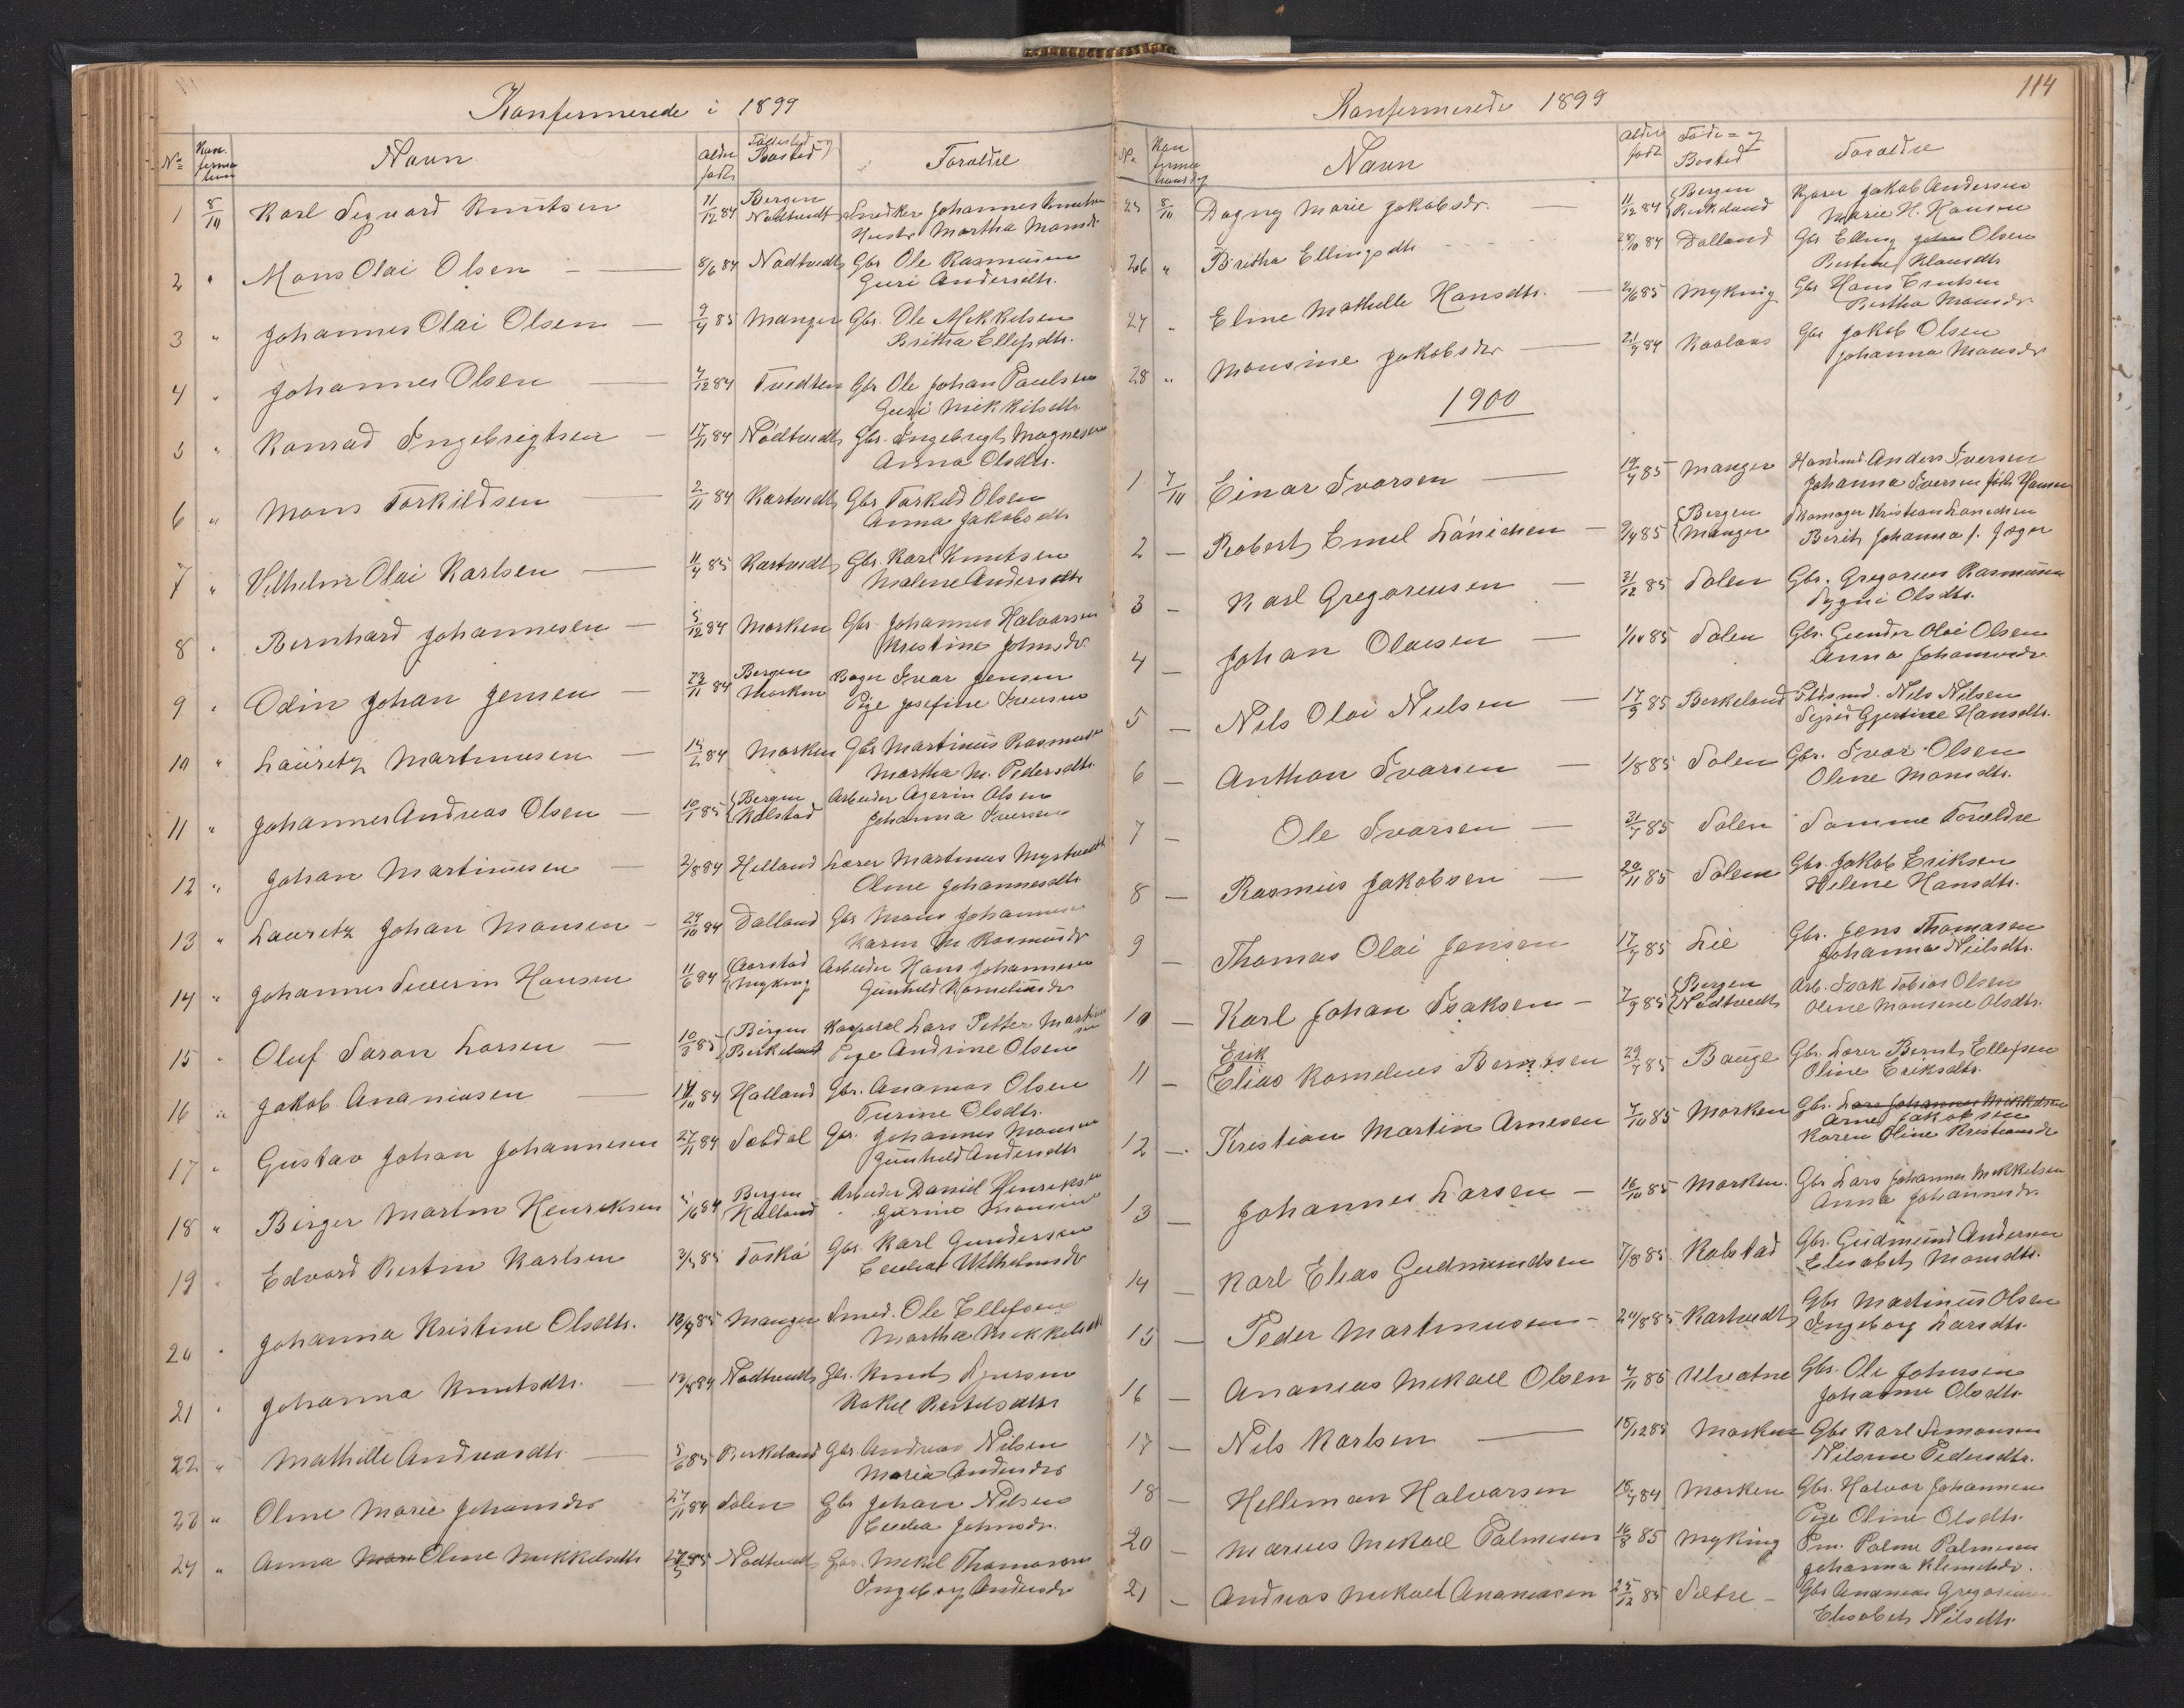 Konfermerede i 1899
No Konfermation Navn Alder født Fødested og Bosted Foreldre
1 8/10 Karl Sigvard Knutsen 11/12 84 Bergen Nødtvedt Snedker Johannes Knutsen
Hustr Martha Monsdr
2 " Mons Olai Olsen — 8/6 84 Nødtvedt Gbr Ole Rasmusen
Guri Andersdtr.
3 " Johannes Olai Olsen — 9/4 85 Manger Gbr. Ole Mikkelsen
Britha Ellefsdtr.
4 " Johannes Olsen — 7/12 84 Tvedten Gbr Ole Johan Paulsen
Guri Mikkelsdtr
5 " Konrad Ingebrigtsen — 17/11 84 Nødtvedt Gbr. Ingebrigt Magnesen
Anna Olsdtr.
6 " Mons Torkildsen — 2/11 84 Kartvedt Gbr Torkild Olsen
Anna Jakobsdtr
7 " Vilhelm Olai Karlsen — 11/4 85 Kartvedt Gbr. Karl Knutsen
Malene Andersdtr
8 " Bernhard Johannesen — 5/12 84 Morken Gbr. Johannes Halvorsen
Kristine Johnsdr.
9 " Odin Johan Jensen — 23/11 84 Bergen Morken Bager Ivar Jensen
Pige Josefine Iversen
10 " Lauritz Martinusen — 14/2 84 Morken Gbr Martinus Rasmusen
Martha M. Pedersdtr.
11 " Johannes Andreas Olsen — 10/1 85 Bergen Kolstad Arbeider Olsen
Johanna Iversen
12 " Johan Martinusen — 2/8 84 Helland Lærer Martinus Myrtvedt
Oline Johannesdtr
13 " Lauritz Johan Monsen — 29/10 84 Dalland Gbr Mons Johannesen
Karen M Rasmusdr
14 " Johannes Severin Hansen 11/6 84 Aarstad Myking Arbeider Hans Johannesen
Gunhild Korneliusdr
15 " Oluf Saron Larsen — 10/3 85 Bergen Birkeland Korporal Lars Petter Martinsen
Pige Andrine Olsen
16 " Jakob Ananiasen — 14/10 84 Halland Gbr. Ananias Olsen
Turine Olsdtr.
17 " Gustav Johan Johannesen 27/11 84 Sæbdal Gbr. Johannes Monsen
Gunhild Andersdtr
18 " Birger Martin Henriksen 5/6 84 Bergen Halland Arbeider Daniel Henriksen
Gurine Monsine
19 " Edvard Kristin Karlsen 3/5 85 Toska Gbr. Karl Gundersen
Cecilia Wilhelmsdr
20 " Johanna Kristine Olsdtr. 13/4 85 Manger Smed. Ole Ellefsen
Martha Mikkelsdtr
21 " Johanna Knutsdtr. — 13/8 84 Nødtvedt Gbr. Knut Iversen
Rakel Bertelsdtr
22 " Mathilde Andreasdtr — 5/6 85 Birkeland Gbr. Andreas Nilsen
Maria Andersdr
23 " Oline Marie Johansdr 27/11 84 Solen Gbr Johan Nilsen
Cecilia Johnsdr.
24 " Anna Oline Mikkelsdtr 27/5 85 Nødtvedt Gbr. Mikal Thomasen
Ingeborg Andersdr
114
Konfermerede 1899
No. Konfermationsdag Navn Alder født Føde= og Bosted Foreldre
25 8/10 Dagny Marie Jakobsdr. — 11/12 84 Bergen Birkeland Kjører Jakob Andersen
Marie H. Hansen
26 " Britha Ellingsdtr 28/10 84 Dalland Gbr Elling Johan Olsen
Bertine Klausdtr
27 " Eline Mathilde Hansdtr. — 24/6 85 Myking Gbr Hans Knutsen
Bertha Monsdr
28 " Monsine Jakobsdr — 21/9 84 Kaalaas Gbr Jakob Olsen
Johanna Monsdr
1900
1 7/10 Einar Ivarsen — 19/4 85 Manger Handm Anders Iversen
Johanna Iversen født Hansen
2 — Robert Emil Lønichen — 9/4 85 Bergen Manger Skomager Kristian Lønichen
Berit Johanna f. Jæger
3 — Karl Gregoriusen — 31/12 85 Solen Gbr. Gregorius Rasmusen
Sygni Olsdtr.
4 — Johan Olaisen — 1/10 85 Solen Gbr. Gunder Olai Olsen
Anna Johannesdr
5 — Nils Olai Nielsen — 17/9 85 Birkeland Nils Nilsen
Sigrid Gjertine Hansdtr.
6 — Anthon Ivarsen — 1/8 85 Solen Gbr. Ivar Olsen
Oline Monsdtr.
7 — Ole Ivarsen — 31/7 85 Solen Samme Foreldre
8 — Rasmus Jakobsen — 20/11 85 Solem Gbr. Jakob Eriksen
Helene Hansdtr.
9 — Thomas Olai Jensen 17/7 85 Lie Gbr. Jens Thomasen
Johanna Nilsdtr.
10 — Karl Johan Isaksen — 7/9 85 Bergen Nødtvedt Arb. Isak Tobias Olsen
Oline Monsine Olsdtr.
11 — Erik
Elias Kornelius Berntsen 29/7 85 Bauge Gbr. Lærer Bernt Ellefsen
Oline Eriksdtr.
12 — Kristian Martin Arnesen 7/10 85 Morken Gbr. Lars Johannes Mikkelsen
Arne Jakobsen
Karen Oline Kristiansdr
13 — Johannes Larsen — 16/10 85 Morken. Gbr Lars Johannes Mikkelsen
Anna Johannesdr.
14 — Karl Elias Gudmundsen 7/8 85 Kolstad Gbr. Gudmund Andersen
Elisabet Monsdtr.
15 — Peder Martinusen — 20/8 85 Kartvedt Gbr Martinus Olsen
Ingeborg Larsdtr.
16 — Ananias Mikael Olsen 4/11 85 Ulvatne Gbr. Ole Johnsen
Johanne Olsdtr.
17 — Nils Karlsen — 15/12 85 Morken Gbr Karl Simonsen
Nilsine Pedersdtr.
18 — Helleman Halvorsen 15/7 84 Morken Gbr. Halvor Johannesen
Pige Oline Olsdtr.
20 — Marius Mikael Palmesen 16/8 85 Myking Pm. Palme Palmesen
Johanna Klemetsdr.
21 — Andreas Mikael Ananiasen 25/12 85 Sætre — Gbr Ananias Gregoriusen
Elisabet Nilsdtr.